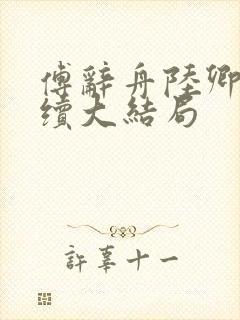 傅辭舟陸卿
續大結局
許辜十一